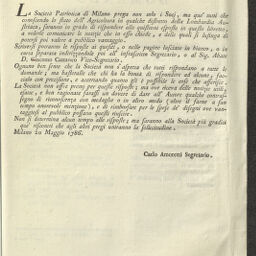 La Società Patriotica di Milano prega non solo i Socj, ma que' tutti che
conoscendo lo stato dell' Agricoltura in qualche distretto della Lombardia Au-
striaca, saranno in grado di rispondere alli questi espressi in questo libretto,
a volerle comunicare le notizie che in esso chiede, e delle quali si lusinga di
potersi poi valere a pubblico vantaggio.
Scriverassi pertanto le risposte ai quesiti, o nelle pagine lasciate in bianco, o in
carta separata indirizzandole poi all' infrascritto Segretario, o al Sig. Abate
D. Giacomo Cattaneo Vice-Segretario.
Ognuno ben sente che la Società non s'aspetta che tutti rispondano a tutte le
domande; ma basteralle che chi ha la bontà di rispondere ad alcune, fac-
cialo con precisione, e accertando quanto gli è possibile le cose che asserisce.
La Società non offre premj per queste risposte; ma ove riceva delle notizie utili,
esatte, e ben ragionate farassi un dovere di dare all' Autore qualche contras-
segno di riconoscenza con medaglie o in altro modo (oltre il farne a suo
tempo onorevol menzione), e di rimborsare per le spese de' disegni ove van-
taggiosi al pubblico possano questi riuscire.
Non si determina alcun tempo alle risposte; ma saranno alla Società più gradite
que' riscontri che agli altri pregi uniranno la sollecitudine.
Milano 20 Maggio 1786.
Carlo Amoretti Segretario.